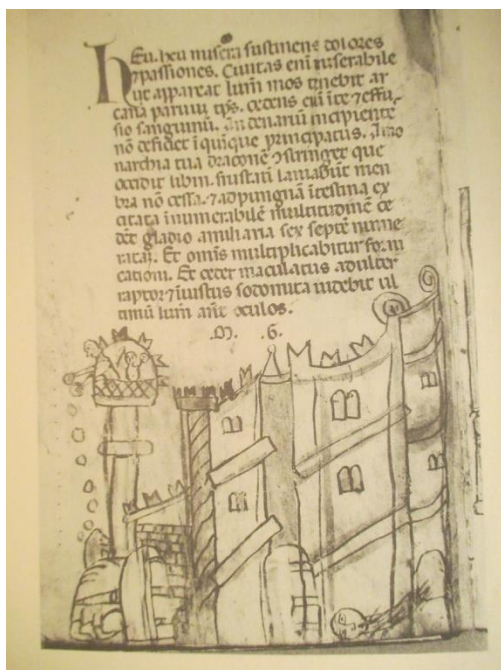 Eu. heu misera sustinens dolores
⁊ passiones. Civitas eni miserabile
ut appareat lum mos tenebit ar
cana parvu tps.
sio sanguinu. incipiente
no deficiet i quinque principatus.
narchia tua dracone ⁊ stringet que
occidit frustati laniabut mem
bra no ⁊ ad pugna itestina ex
citata inumerabile multitudine ce
det gladio a miliaria sex septe nume
rata. Et omis multiplicabitur forni
cationi. Et maculatus adulter
raptor ⁊ iiustus sodomita videbit ul
timu lum ant oculos.
.M. .G.